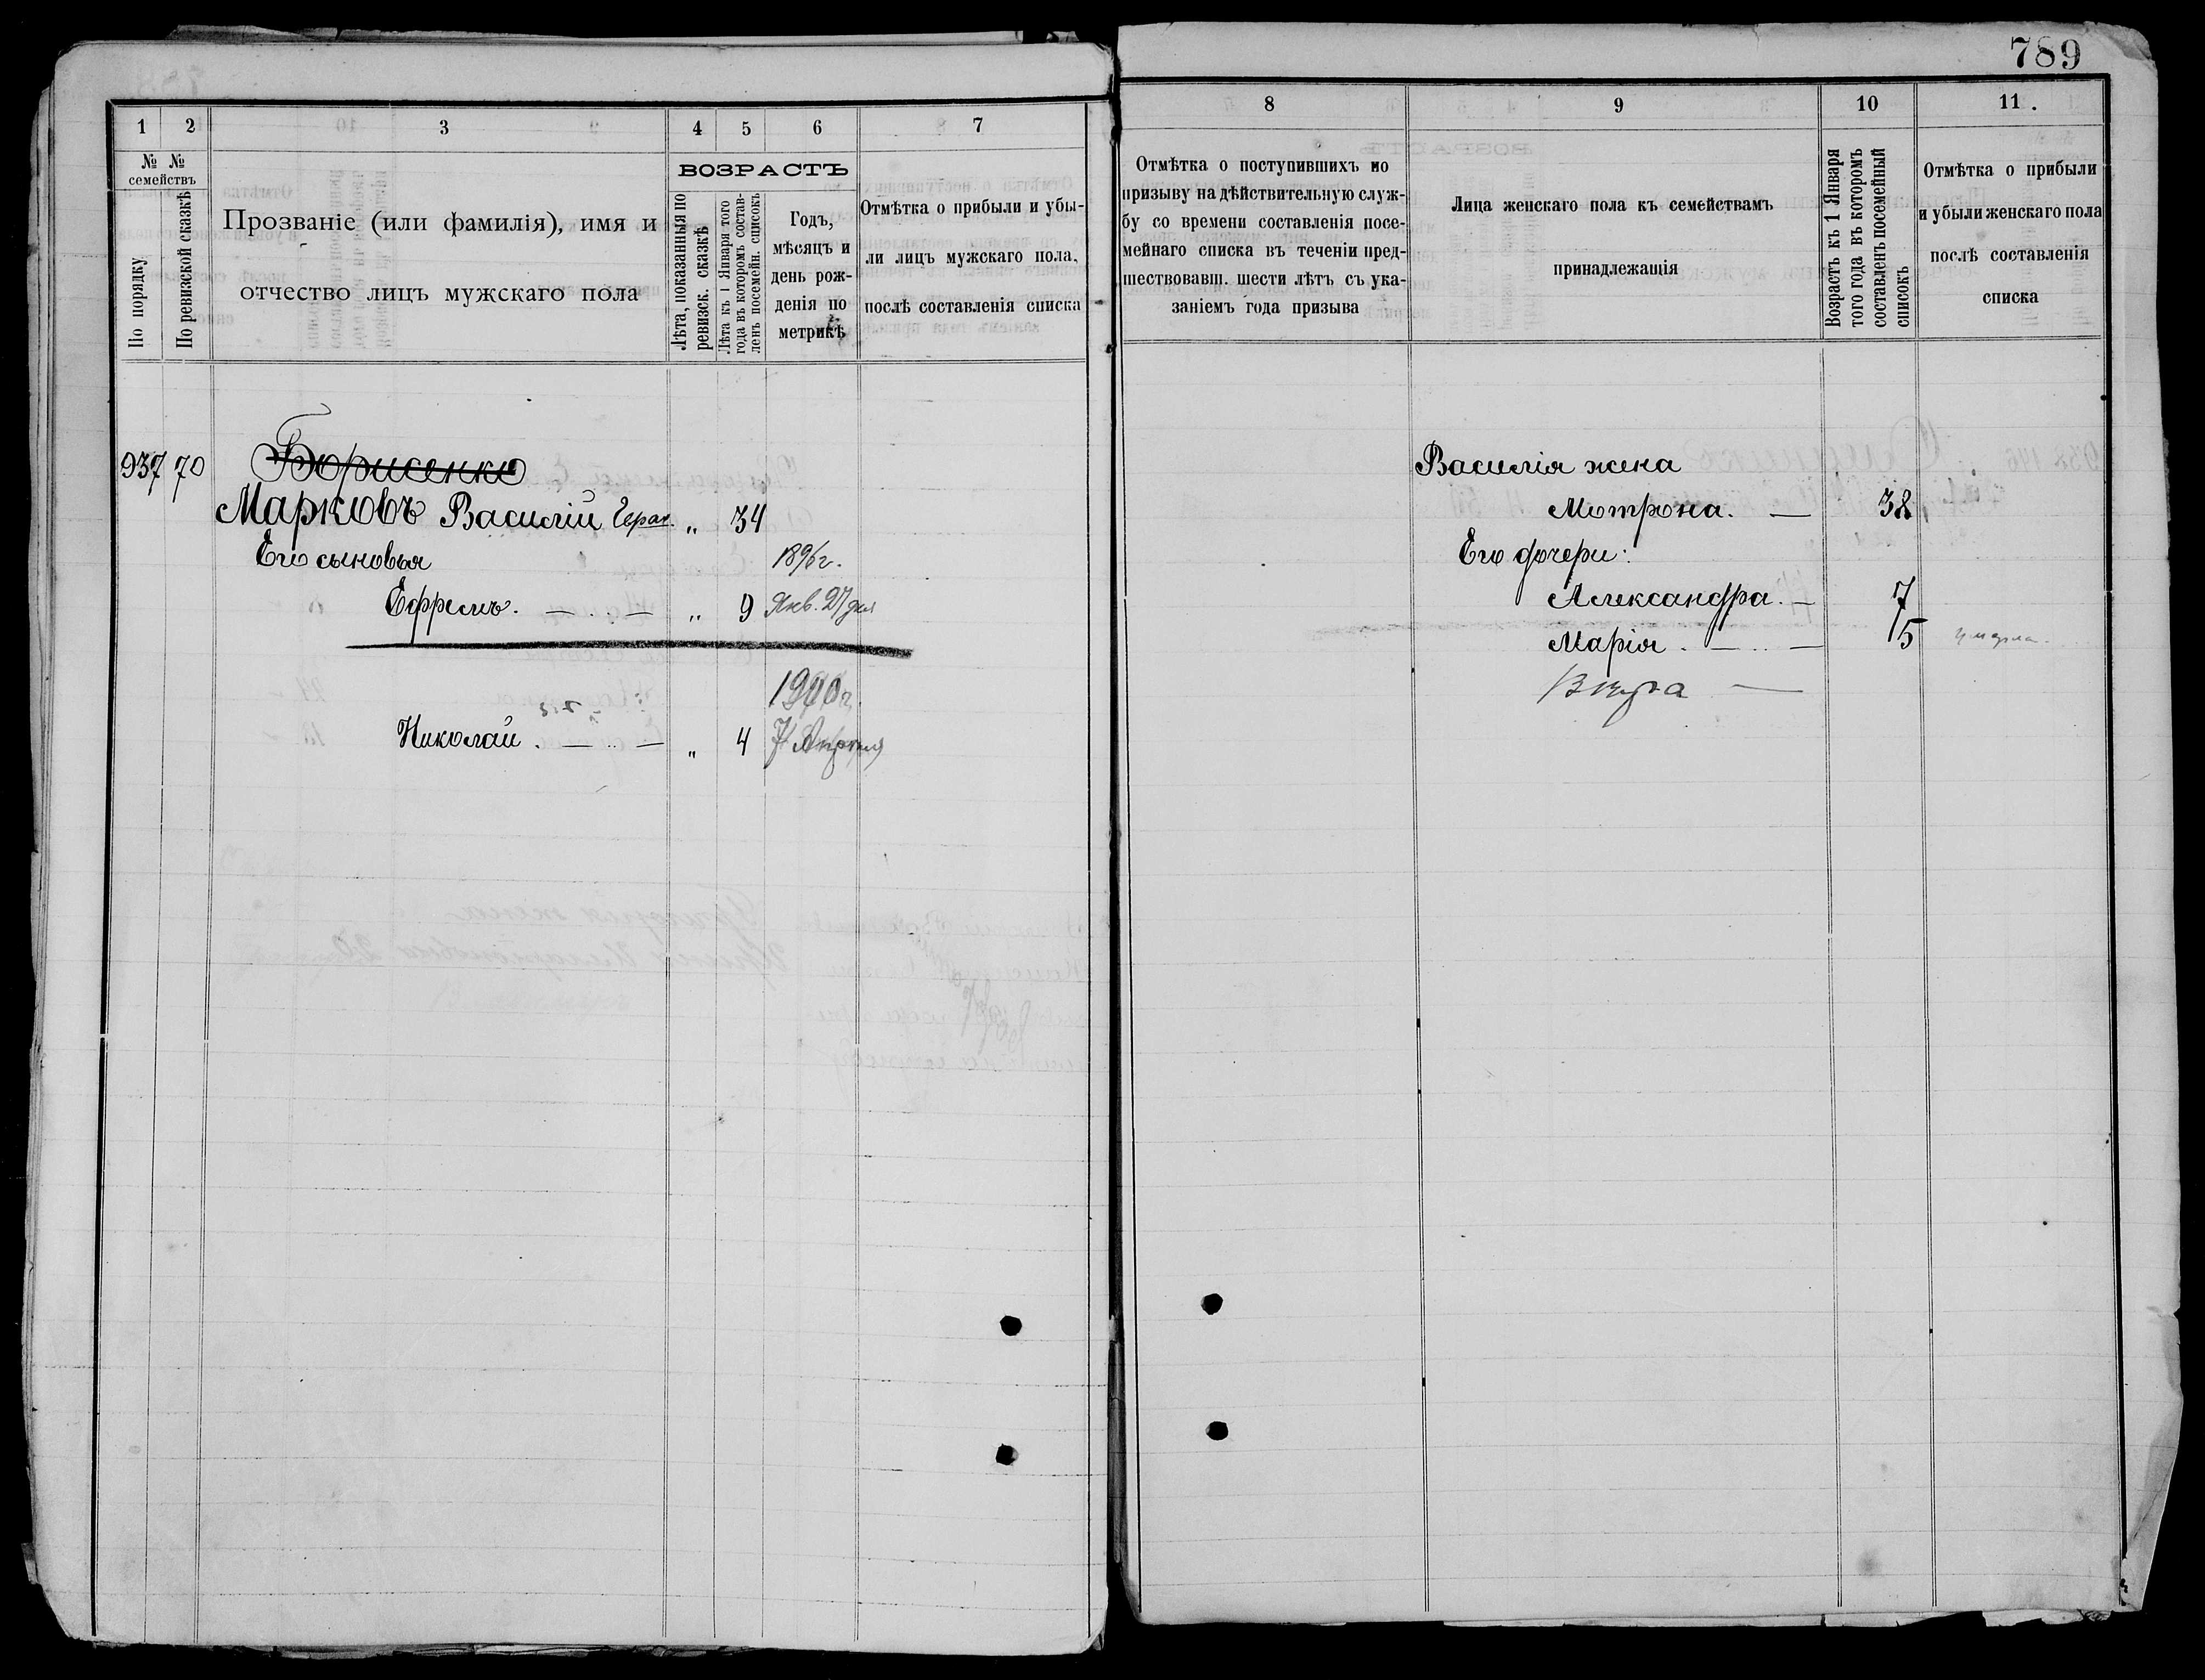 789
1 2 3 4 5 6 7
№ № семействъ
По порядку
По ревизской сказкѣ
Прозваніе (или фамилія), имя и
отчество лицъ мужскаго пола
ВОЗРАСТЪ
Лѣта, показанныя по
ревизск. сказкѣ
Лѣта къ 1 Января того
года въ которомъ состав-
ленъ посемейн. списокъ
Годъ,
мѣсяцъ и
день рож-
денія по
метрикѣ
Отмѣтка о прибыли и убы-
ли лицъ мужскаго пола,
послѣ составленія списка
937 70 Борисенко
Марковъ Василій Герас. „ 34
Его сыновья 1896 г.
Ефремъ. — . . — „ 9 Янв. 27 дня
1900 г.
Николай . — .. — „ 4 7 Апрѣля
8 9 10 11 .
Отмѣтка о поступившихъ по
призыву на дѣйствительную служ-
бу со времени составленія посе-
мейнаго списка въ теченіи пред-
шествовавш. шести лѣтъ съ ука-
заніемъ года призыва
Лица женскаго пола къ семействамъ
принадлежащія
Возрастъ къ 1 Января
того года въ которомъ
составленъ посемейный
списокъ
Отмѣтка о прибыли
и убыли женскаго пола
послѣ составленія
списка
Василія жена
Мотрона. — 38
Его дочери:
Александра. — 7
Марія . — .. — 5 умерла.